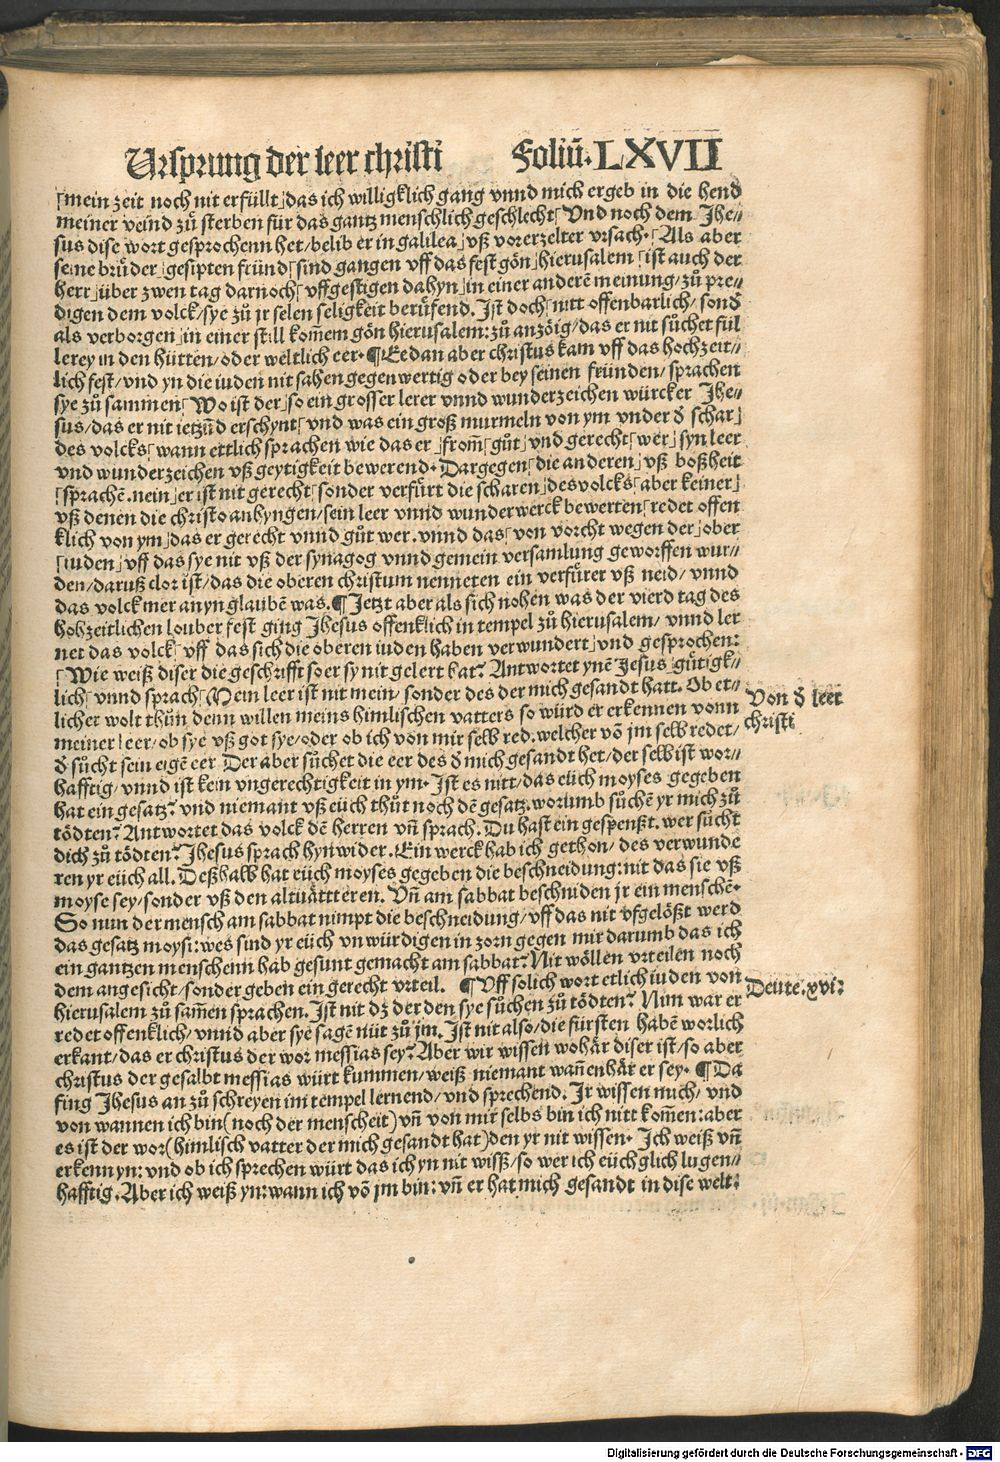 Ursprung der leer christi Foliū. LXVII
⌈mein zeit noch nit erfüllt⌋das ich willigklich gang vnnd mich ergeb in die hend
meiner veind zů sterben für das gantz menschlich geschlecht⌈Vnd noch dem Jhe⸗
sus dise wort gesprochenn het/belib er in galilea⌋vß vorerzelter vrsach.⌈Als aber
seine brůder⌋gesipten fründ⌈sind gangen vff das fest gōn⌋hierusalem⌈ist auch der
herr⌋über zwen tag darnoch⌈vffgestigen dahyn⌋in einer anderē meinung/zů pre⸗
digen dem volck/sye zů jr selen seligkeit berůfend. Jst doch⌈nitt offenbarlich/sond̄
als verborgen⌋in einer still kom̄em gōn hierusalem: zů anzōig/das er nit sůchet fül
lerey in den hütten/oder weltlich eer. ¶Ee dan aber christus kam vff das hochzeit⸗
lich fest/vnd yn die iuden nit sahen gegenwertig oder bey seinen fründen/sprachen
sye zů sammen⌈Wo ist der⌋so ein grosser lerer vnnd wunderzeichen würcker Jhe⸗
sus/das er nit ietzūd erschynt⌈vnd was ein groß murmeln von ym vnder d̄ schar⌋
des volcks⌈wann ettlich sprachen wie das er⌋from̄⌈gůt⌋vnd gerecht⌈wer⌋syn leer
vnd wunderzeichen vß geytigkeit bewerend. Dargegen⌈die anderen⌋vß boßheit
⌈sprachē.nein⌋er ist nit gerecht⌈sonder verfürt die scharen⌋des volcks⌈aber keiner⌋
vß denen die christo anhyngen/sein leer vnnd wunderwerck bewerten⌈redet offen
klich von ym⌋das er gerecht vnnd gůt wer.vnnd das⌈von vorcht wegen der⌋ober
⌈iuden⌋vff das sye nit vß der synagog vnnd gemein versamlung geworffen wur⸗
den/daruß clor ist/das die oberen christum nenneten ein verfürer vß neid/vnnd
das volck mer an yn glaubē was. ¶Jetzt aber als sich nohen was der vierd tag des
hohzeitlichen louber fest ging Jhesus offenklich in tempel zů hierusalem/vnnd ler
net das volck⌈vff das sich die oberen iuden haben verwundert⌋vnd gesprochen:
⌈Wie weiß diser die geschrifft so er sy nit gelert hat? Antwortet ynē Jesus⌋gütigk⸗
lich⌈vnnd sprach⌈Mein leer ist nit mein/sonder des der mich gesandt hatt. Ob et⸗
licher wolt thůn denn willen meins himlischen vatters so würd er erkennen vonn
meiner leer/ob sye vß got sye/oder ob ich von mir selb red.welcher vō jm selb redet/
d̄ sůcht sein eigē eer Der aber sůchet die eer des d̄ mich gesandt het/der selb ist wor⸗
hafftig/vnnd ist kein vngerechtigkeit in ym. Jst es nitt/das eüch moyses gegeben
hat ein gesatz? vnd niemant vß eüch thůt noch dē gesatz.worumb sůchē yr mich zů
tödten? Antwortet das volck dē herren vn̄ sprach. Du hast ein gespenßt.wer sůcht
dich zů tödten? Jhesus sprach hynwider. Ein werck hab ich gethon/des verwunde
ren yr eüch all. Deßhalb hat eüch moyses gegeben die beschneidung: nit das sie vß
moyse sey/sonder vß den altvättteren. Vn̄ am sabbat beschniden jr ein menschē.
So nun der mensch am sabbat nimpt die beschneidung/vff das nit vfgelößt werd
das gesatz moysi: wes sind yr eüch vnwürdigen in zorn gegen mir darumb das ich
ein gantzen menschenn hab gesunt gemacht am sabbat? Nit wöllen vrteilen noch
dem angesicht/sonder geben ein gerecht vrteil. ¶Vff solich wort etlich iuden von
hierusalem zů sam̄en sprachen. Jst nit dz der den sye sůchen zů tödten? Nim war er
redet offenklich/vnnd aber sye sagē nüt zů jm. Jst nit also/die fürsten habē worlich
erkant/das er christus der wor messias sey? Aber wir wissen wohār diser ist/so aber
christus der gesalbt messias würt kummen/weiß niemant wan̄enhār er sey. ¶Da
fing Jhesus an zů schreyen im tempel lernend/vnd sprechend. Jr wissen mich/vnd
von wannen ich bin(noch der menscheit)vn̄ von mir selbs bin ich nitt kom̄en: aber
es ist der wor(himlisch vatter der mich gesandt hat)den yr nit wissen. Jch weiß vn̄
erkenn yn: vnd ob ich sprechen würt das ich yn nit wisß/so wer ich eüch glich lugen⸗
hafftig. Aber ich weiß yn: wann ich vō jm bin: vn̄ er hat mich gesandt in dise welt:
Von d̄ leer
christi
Deüte.xvi:
Digitalisierung gefördert durch die Deutsche Forschungsgemeinschaft - DFG